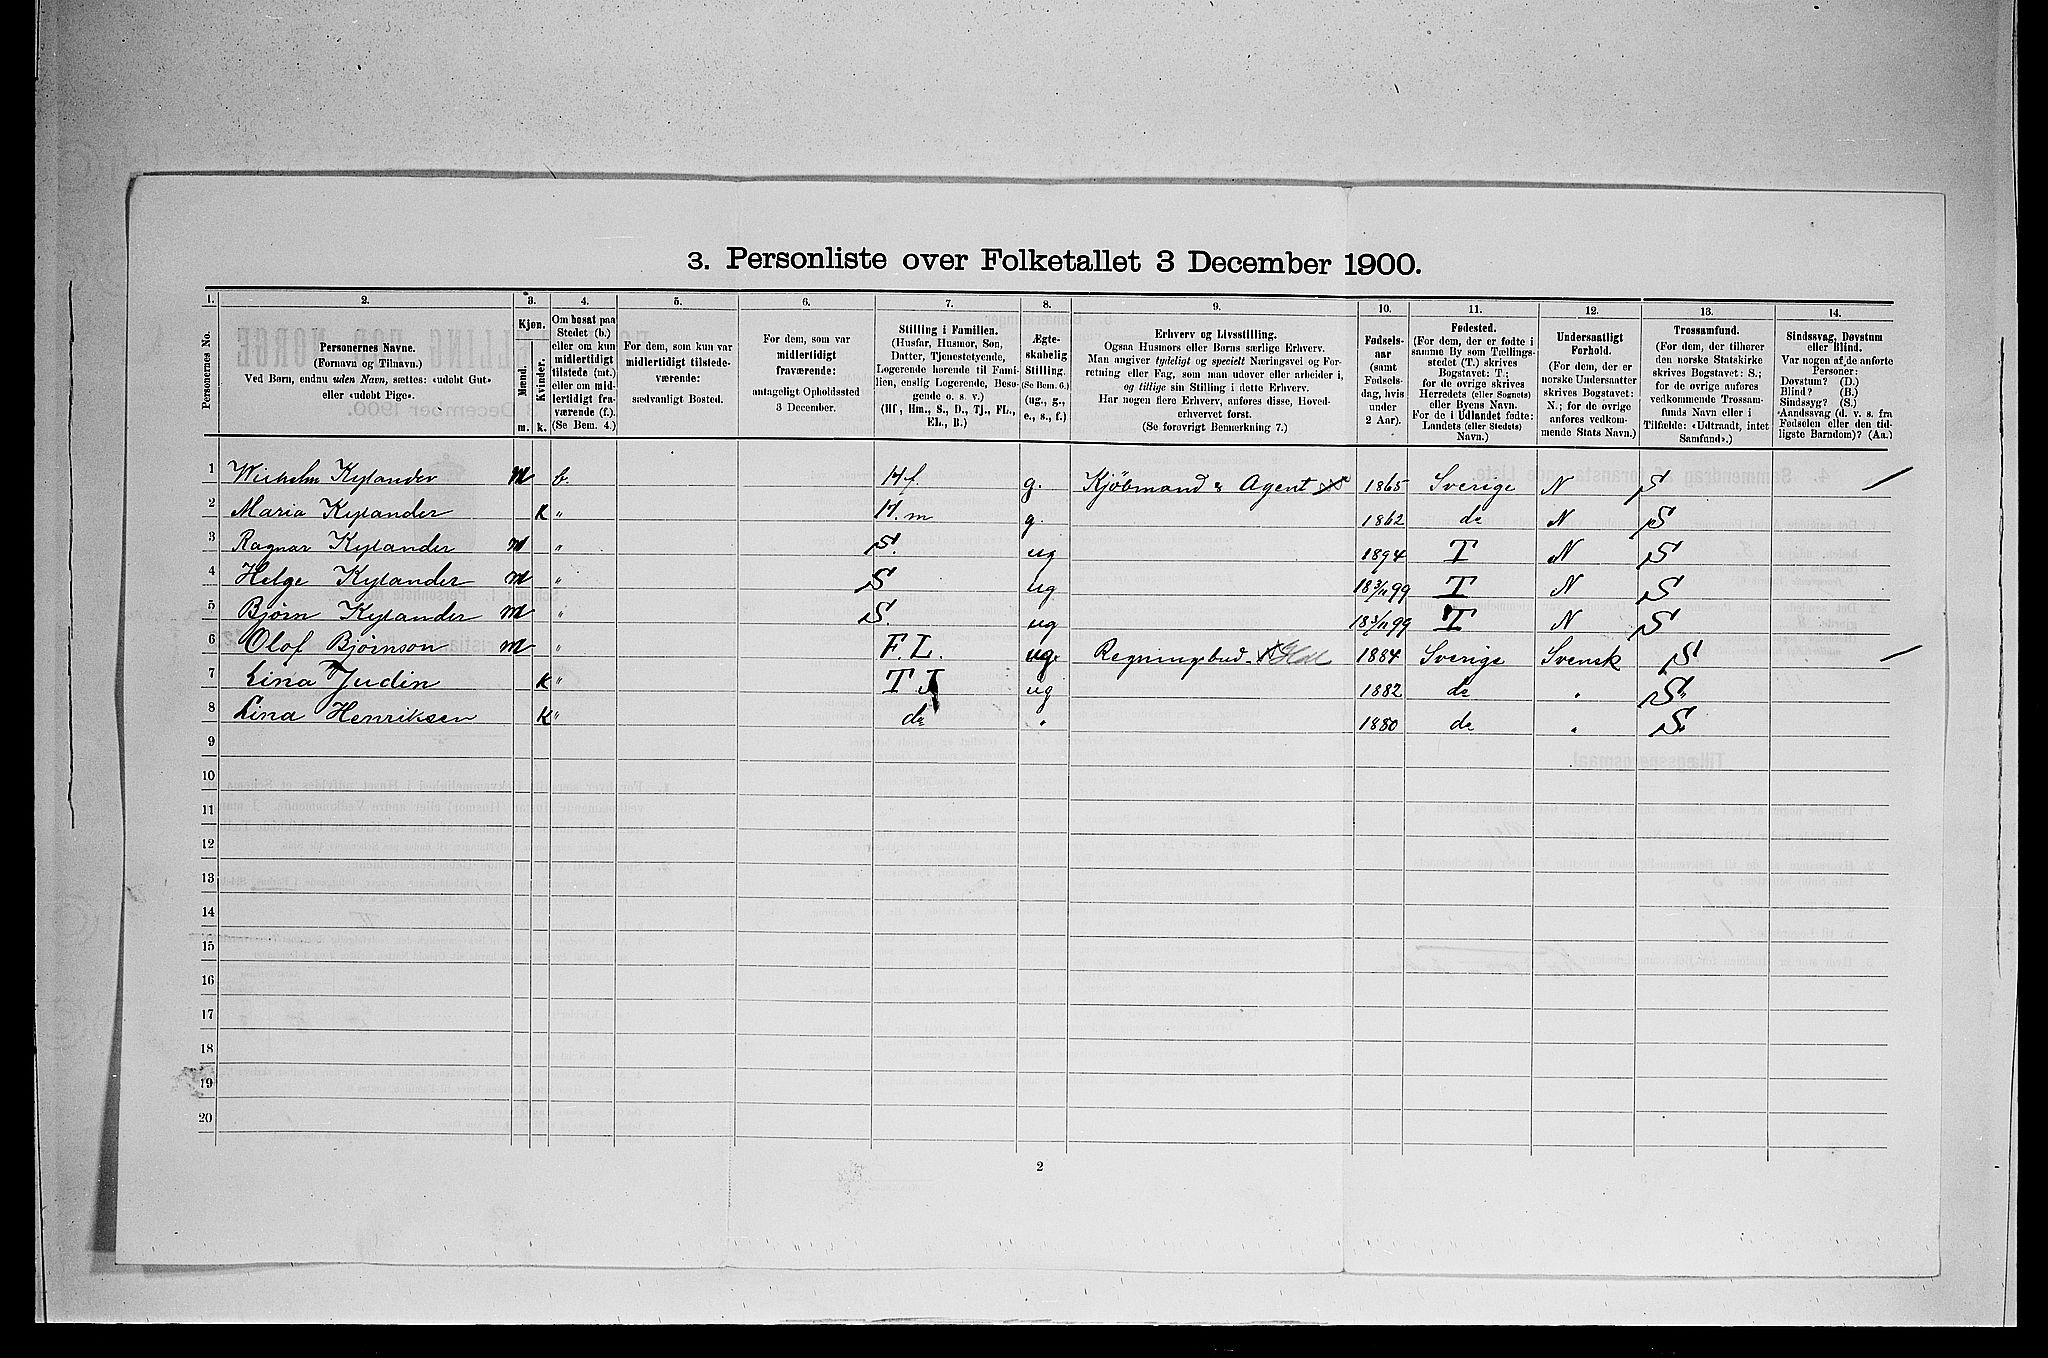 3. Personliste over Folketallet 3 December 1900.
1. 2. 3. 4. 5. 6. 7. 8. 9. 10. 11. 12. 13. 14.
Personernes No.
Personernes Navne.
(Fornavn og Tilnavn.)
Ved Børn, endnu uden Navn, sættes: «udøbt Gut»
eller «udøbt Pige».
Kjøn.
Mænd.
Kvinder.
m. k.
Om bosat paa
Stedet (b.)
eller om kun
midlertidigt
tilstede (mt.)
eller om mid-
lertidigt fra-
værende (f.).
(Se Bem. 4.)
For dem, som kun var
midlertidigt tilstede-
værende:
sædvanligt Bosted.
For dem, som var
midlertidigt
fraværende:
antageligt Opholdssted
3 December.
Stilling i Familien.
(Husfar, Husmor, Søn,
Datter, Tjenestetyende,
Logerende hørende til Fami-
lien, enslig Logerende, Besø-
gende o. s. v.)
(Hf., Hm., S., D., Tj., FL.,
EL., B.)
Ægte-
skabelig
Stilling.
(Se Bem. 6.)
(ug., g.,
e., s., f.)
Erhverv og Livsstilling.
Ogsaa Husmors eller Børns særlige Erhverv.
Man angiver tydeligt og specielt Næringsvei og For-
retning eller Fag, som man udøver eller arbeider i,
og tillige sin Stilling i dette Erhverv.
Har nogen flere Erhverv, anføres disse, Hoved-
erhvervet først.
(Se forøvrigt Bemerkning 7.)
Fødsels-
aar
(samt
Fødsels-
dag, hvis
under
2 Aar).
Fødested.
(For dem, der er fødte i
samme By som Tællings-
stedet (T.) skrives
Bogstavet: T.;
for de øvrige skrives
Herredets (eller Sognets)
eller Byens Navn.
For de i Udlandet fødte:
Landets (eller Stedets)
Navn.)
Undersaatligt
Forhold.
(For dem, der er
norske Undersaatter
skrives Bogstavet:
N.; for de øvrige
anføres vedkom-
mende Stats Navn.)
Trossamfund.
(For dem, der tilhører
den norske Statskirke
skrives Bogstavet: S.;
for de øvrige anføres
vedkommende Trossam-
funds Navn eller i
Tilfælde: «Udtraadt, intet
Samfund».)
Sindssvag, Døvstum
eller Blind.
Var nogen af de anførte
Personer:
Døvstum? (D.)
Blind? (B.)
Sindssyg? (S.)
Aandssvag (d. v. s. fra
Fødselen eller den tid-
ligste Barndom)? (Aa.)
1 Wilhelm Kylander m b. H f. g. Kjöbmand & Agent 1865 Sverige N S
2 Maria Kylander K " H. m g. 1862 do N S
3 Ragnar Kylander m " S. ug 1894 T N S
4 Helge Kylander m " S ug 18 3/11 99 T N S
5 Bjørn Kylander m " S. ug 18 3/11 99 T N S
6 Olof Bjørnson m " F. L. ug. Regningsbud 1884 Sverige Svensk S
7 Lina Judin K " T J ug 1882 do " S
8 Lina Henriksen K " do " 1880 do " S
9
10
11
12
13
14
15
16
17
18
19
20
2